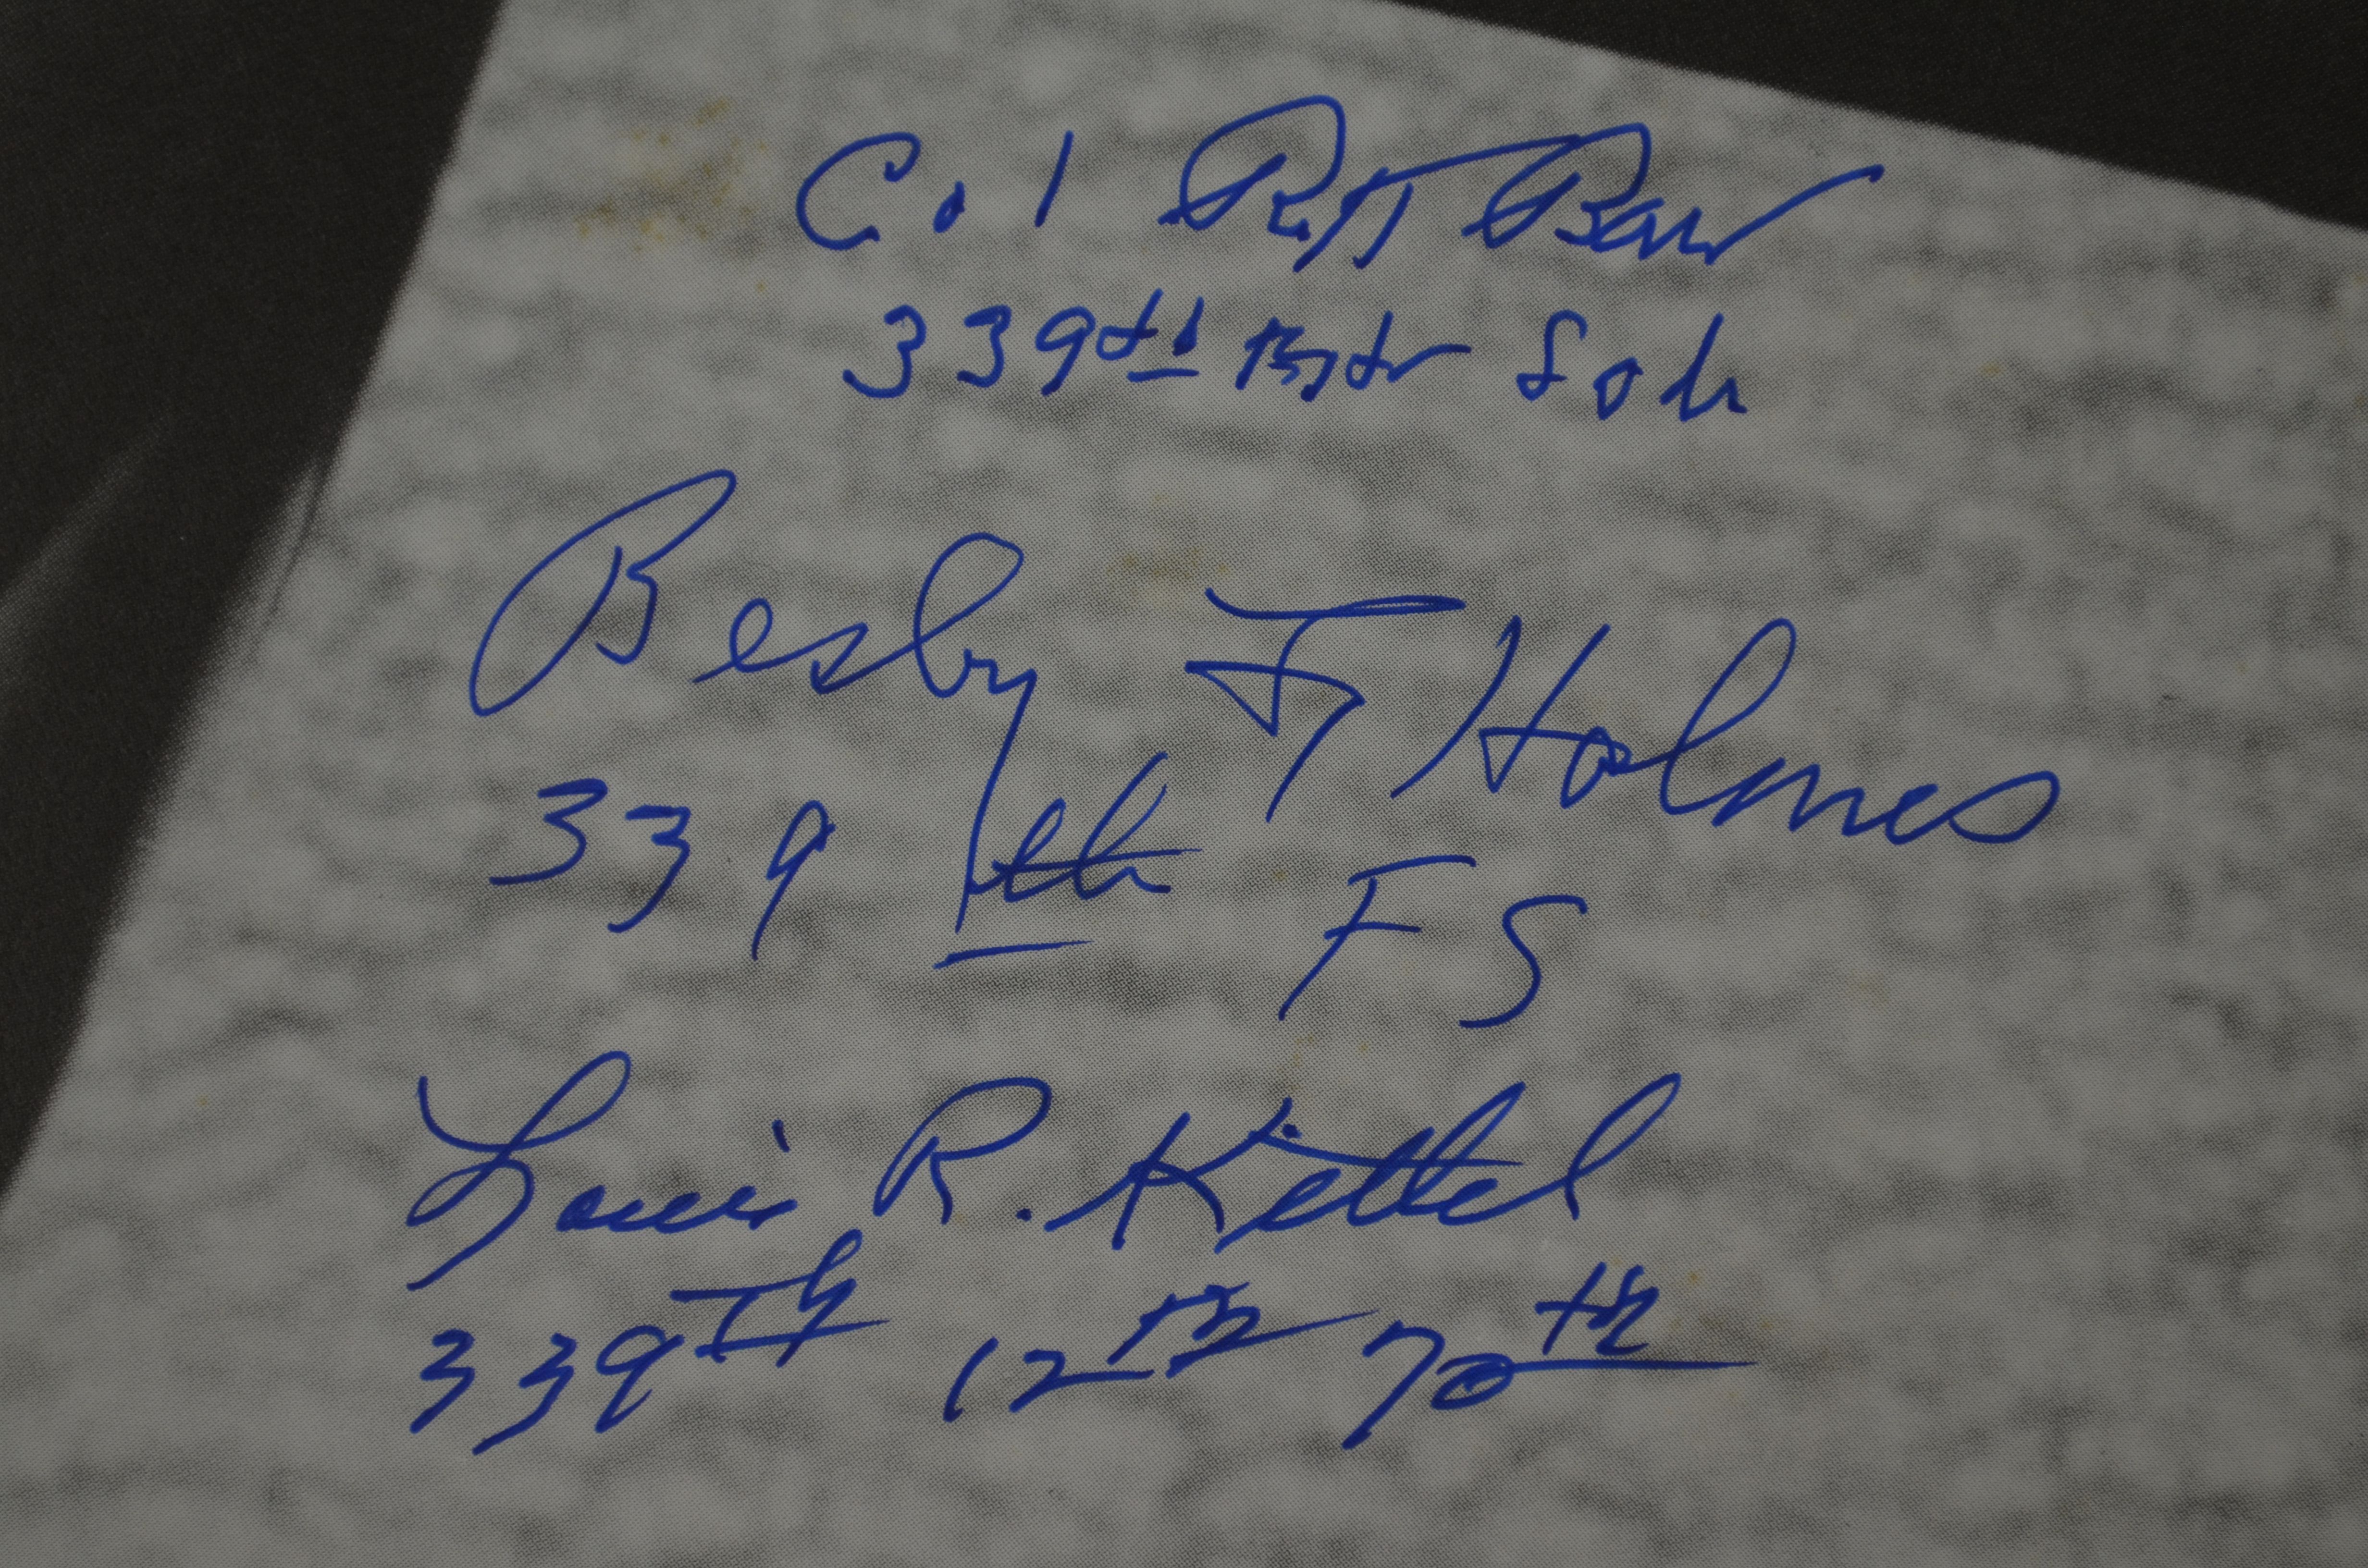 Col Rex T Barber
339th Ftr Sqdn
Besby F Holmes
339th FS
Louis R. Kittel
339th 12th 70th